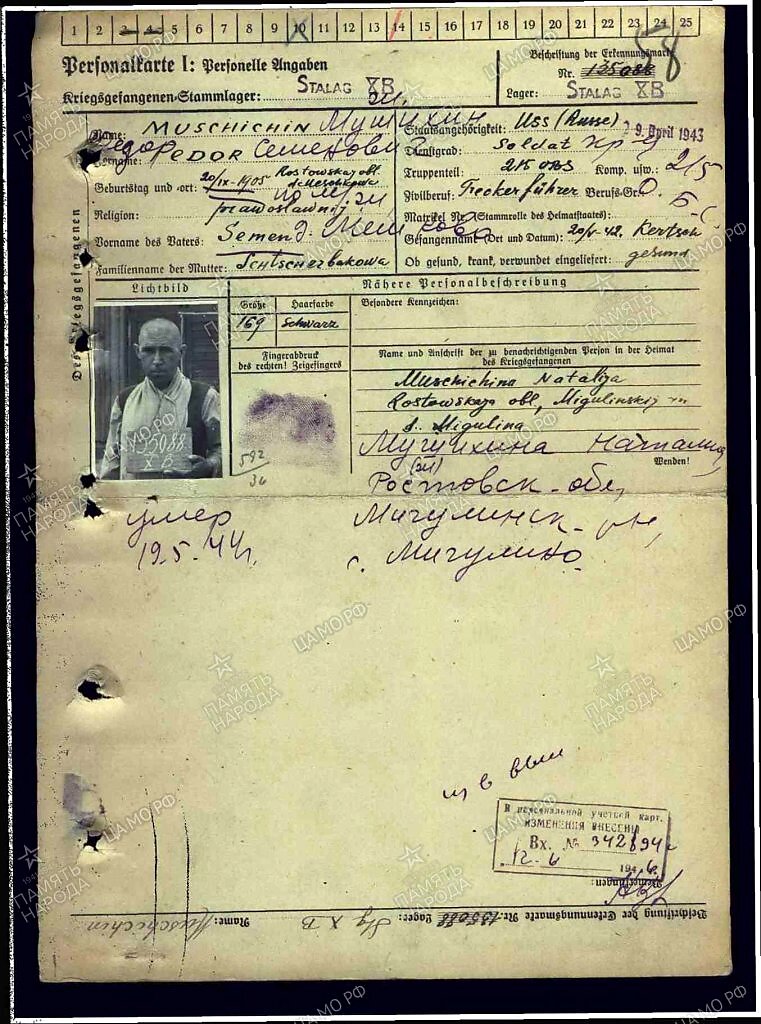 1 2 3 4 5 6 7 8 9 10 11 12 13 14 15 16 17 18 19 20 21 22 23 24 25
Personalkarte I: Personelle Angaben
Kriegsgefangenen-Stammlager: STALAG XB
Beschriftung der Erkennungsmarke
Nr. 135088
Lager: STALAG XB
Des Kriegsgefangenen
Name: MUSCHICHIN Мушихин
Vorname: FEDOR Федор Семенович
Geburtstag und -ort: 20/IX-1905 Rostowskaj obl.
Religion: prawoslawnij
Vorname des Vaters: Semen
Familienname der Mutter: Schtscherbakowa
Staatsangehörigkeit: Uss (Russe)
29. April 1943
Dienstgrad: Soldat кр-ц
Truppenteil: 215 OBS Komp. usw.: 215
Zivilberuf: Treckerführer Berufs-Gr.:
Matrikel Nr. (Stammrolle des Heimatstaates):
Gefangennahme (Ort und Datum): 20/V-42. Kertsch
Ob gesund, krank, verwundet eingeliefert: gesund
Lichtbild
Nähere Personalbeschreibung
Größe Haarfarbe Besondere Kennzeichen:
169 schwarz
Fingerabdruck
des rechten! Zeigefingers
Name und Anschrift der zu benachrichtigenden Person in der Heimat
des Kriegsgefangenen
Muschichina Natalija
Rostowskaja obl, Migulinskij
s. Migulina
135088
X B
592
36
Мушихина Наталия
Wenden!
(ш)
Ростовск. обл,
Мигулинск. рн,
с. Мигулино.
умер
19.5.44г.
В персональной учетной карт.
ИЗМЕНЕНИЯ ВНЕСЕНЫ
Вх. № 342894с
12-6 1946г.
Bemerkungen:
Beschriftung der Erkennungsmarke Nr. 135088 Lager: Stlg X B Name: Muschichin
ПАМЯТЬ НАРОДА
ЦАМО.РФ